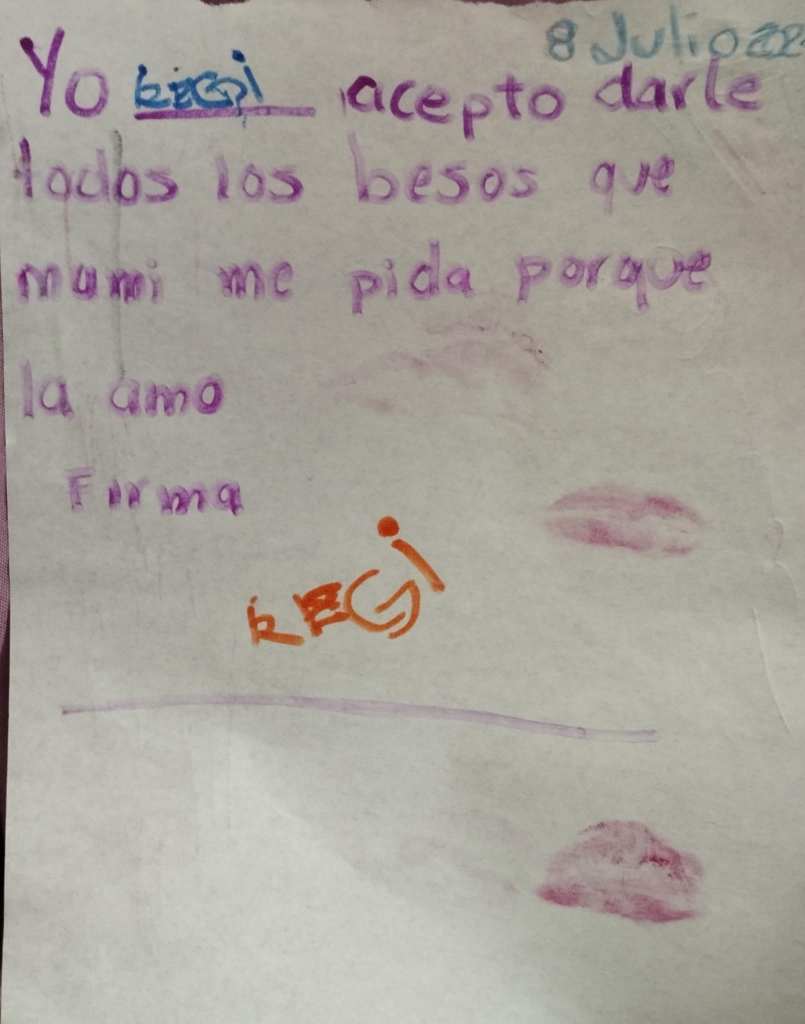 8 Julio 22
Yo REGi acepto darle
todos los besos que
mami me pida porque
la amo
Firma
REGi